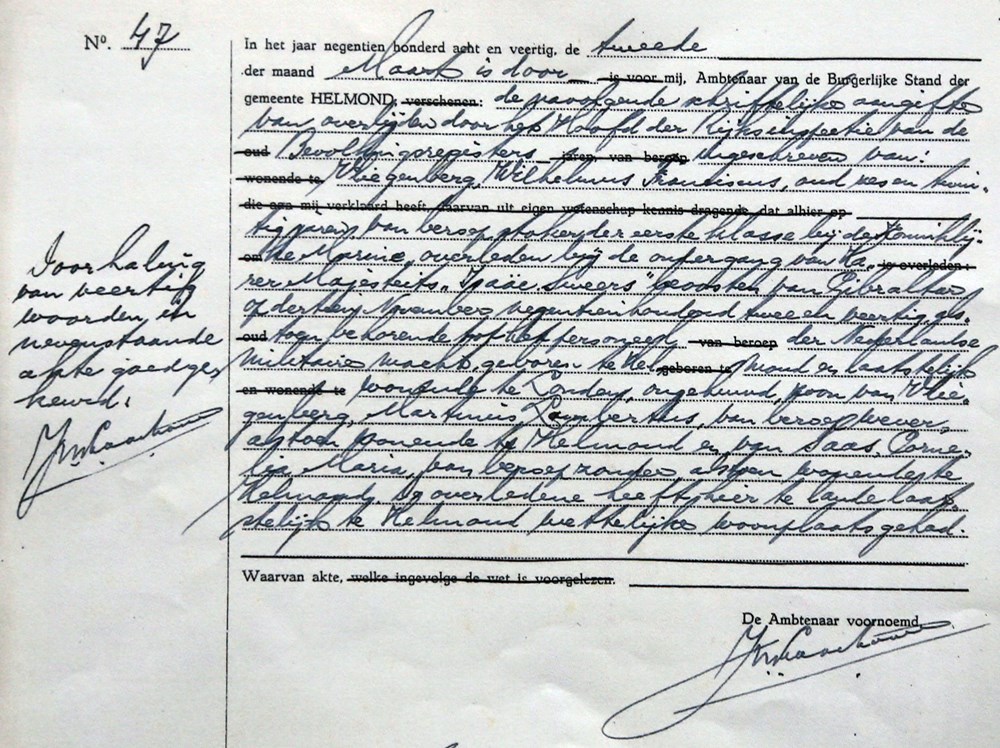 No. 47
In het jaar negentien honderd acht en veertig, de tweede
der maand Maart is door is voor mij, Ambtenaar van de Burgerlijke Stand der
gemeente HELMOND, verschenen: de navolgende schriftelijke aangifte
van overlijden door het Hoofd der Rijksinspectie van de
oud Bevolkingsregisters jaren, van beroep ingeschreven van:
wonende te Vliegenberg, Wilhelmus Franciscus, oud zes en twin-
die aan mij verklaard heeft, daarvan uit eigen wetenschap kennis dragende, dat alhier op
tig jaren, van beroep stoker der eerste klasse bij de Koninklij-
om ke Marine, overleden bij de ondergang van Ha- is overleden:
rer Majesteits "Isaäc Sweers" beoosten van Gibraltar
op dertien November negentienhonderd twee en veertig, des-
oud tijds behorende tot het personeel van beroep der Nederlandse
Militaire macht, geboren te Hel- geboren te mond en laatstelijk
en wonende te wonende te Londen, ongehuwd, zoon van Vlie-
genberg, Martinus Lambertus, van beroep wever,
alstoen wonende te Helmond en van Saas, Corne-
lia Maria, van beroep zonder, alstoen wonende te
Helmond. De overledene heeft hier te lande laat-
stelijk te Helmond wettelijke woonplaats gehad.
Waarvan akte, welke ingevolge de wet is voorgelezen.
De Ambtenaar voornoemd,
Doorhaling
van veertig
woorden, in
nevenstaande
akte goedge-
keurd.